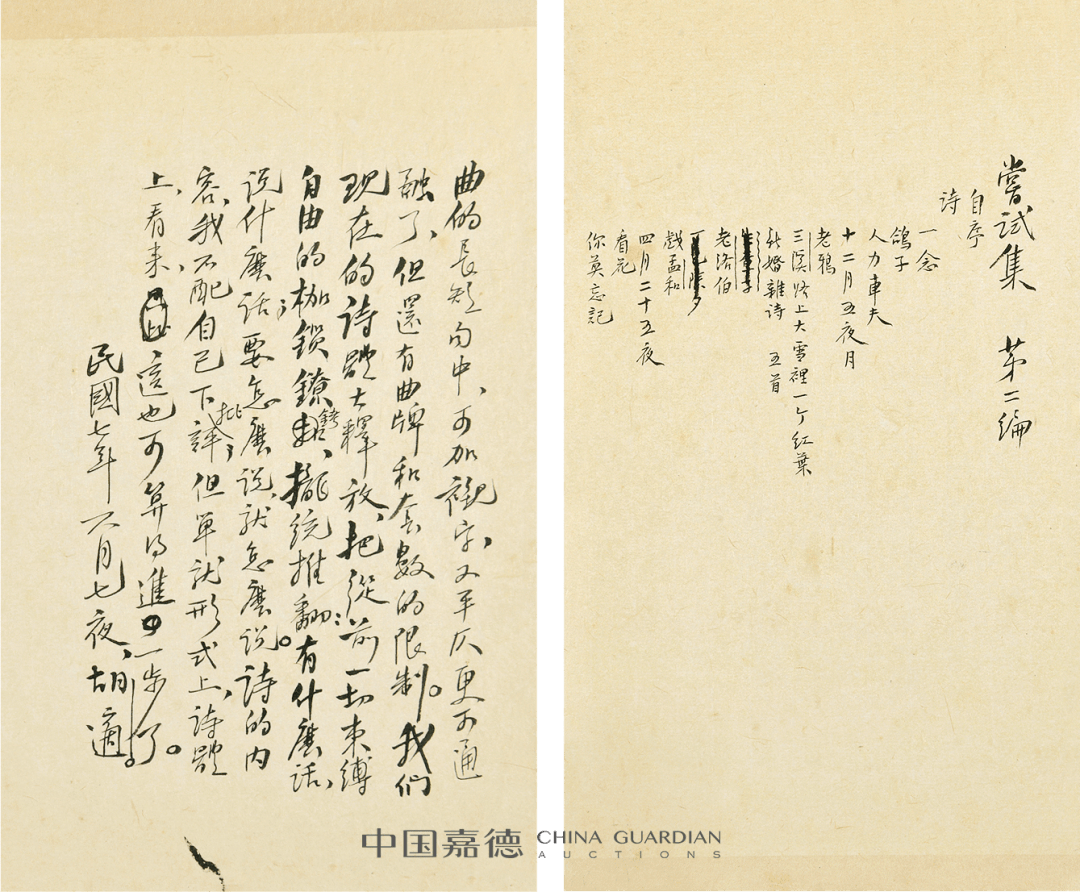 嘗試集 第二編
自序
詩
一念
鴿子
人力車夫
十二月五夜月
老鴉
三溪路上大雪裡一个紅葉
新婚雜詩 五首
老洛伯
戲孟和
四月二十五夜
看花
你莫忘記
曲的長短句中，可加襯字，又平仄更可通
融了，但還有曲牌和套數的限制。我們
現在的詩體大釋放，把從前一切束縛
自由的枷鎖鐐銬，攏統推翻：有什麽話，
說什麽話；要怎麽說，就怎麽說。詩的內
容，我不配自己下批評；但單就形式上，詩體
上，看來，這也可算得進一步了。
民國七年六月七夜，胡適。
中国嘉德 CHINA GUARDIAN
AUCTIONS